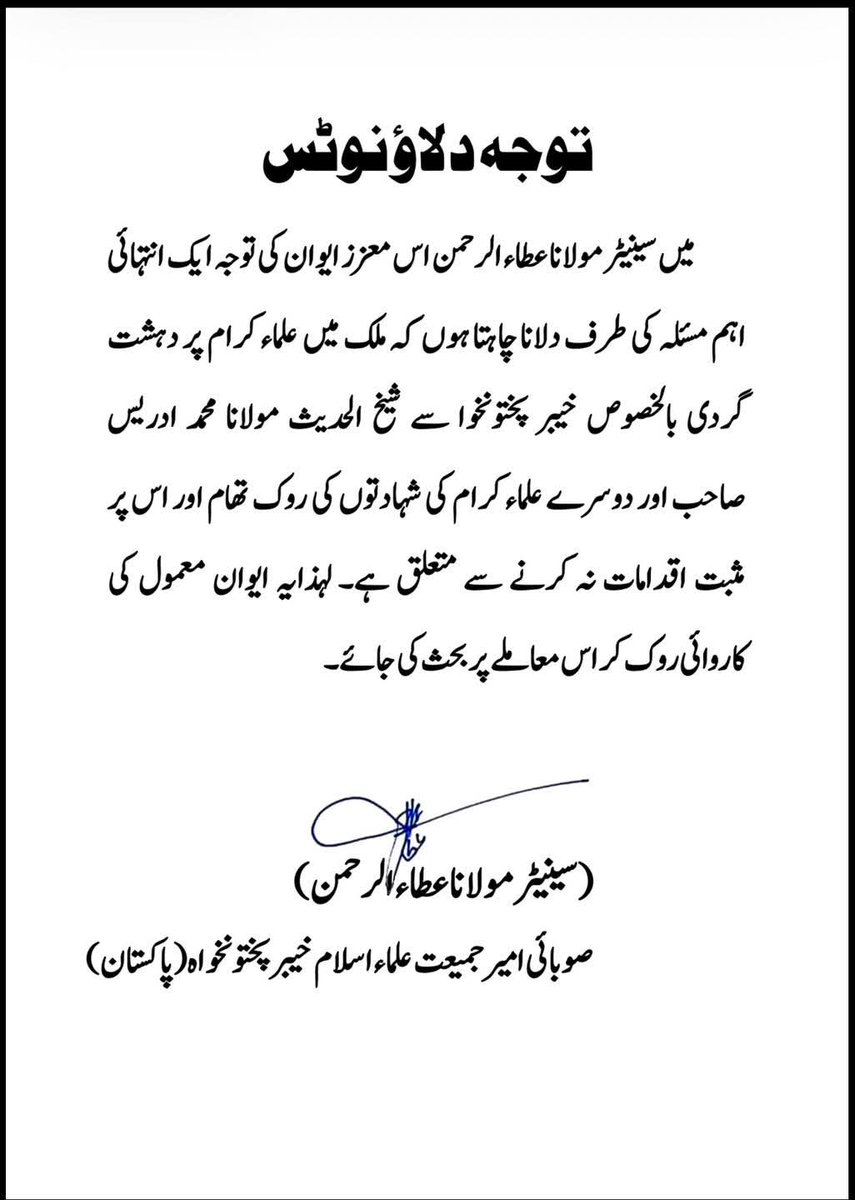 توجہ دلاؤ نوٹس
میں سینیٹر مولانا عطاء الرحمن اس معزز ایوان کی توجہ ایک انتہائی
اہم مسئلہ کی طرف دلانا چاہتا ہوں کہ ملک میں علماء کرام پر دہشت
گردی بالخصوص خیبر پختونخوا سے شیخ الحدیث مولانا محمد ادریس
صاحب اور دوسرے علماء کرام کی شہادتوں کی روک تھام اور اس پر
مثبت اقدامات نہ کرنے سے متعلق ہے۔ لہذا یہ ایوان معمول کی
کاروائی روک کر اس معاملے پر بحث کی جائے۔
(سینیٹر مولانا عطاء الرحمن)
صوبائی امیر جمیعت علماء اسلام خیبر پختونخواہ (پاکستان)